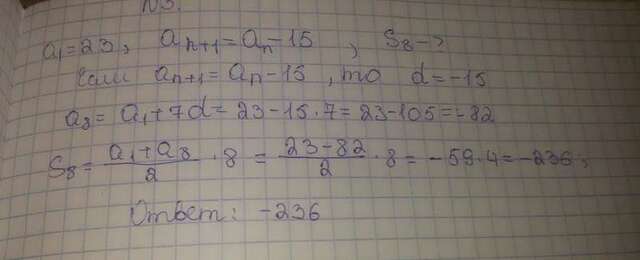 N3.
a₁=23, aₙ₊₁=aₙ-15, S₈-?
Если aₙ₊₁=aₙ-15, то d=-15
a₈=a₁+7d=23-15·7=23-105=-82
S₈=(a₁+a₈)/2·8=(23-82)/2·8=-59·4=-236,
Ответ: -236